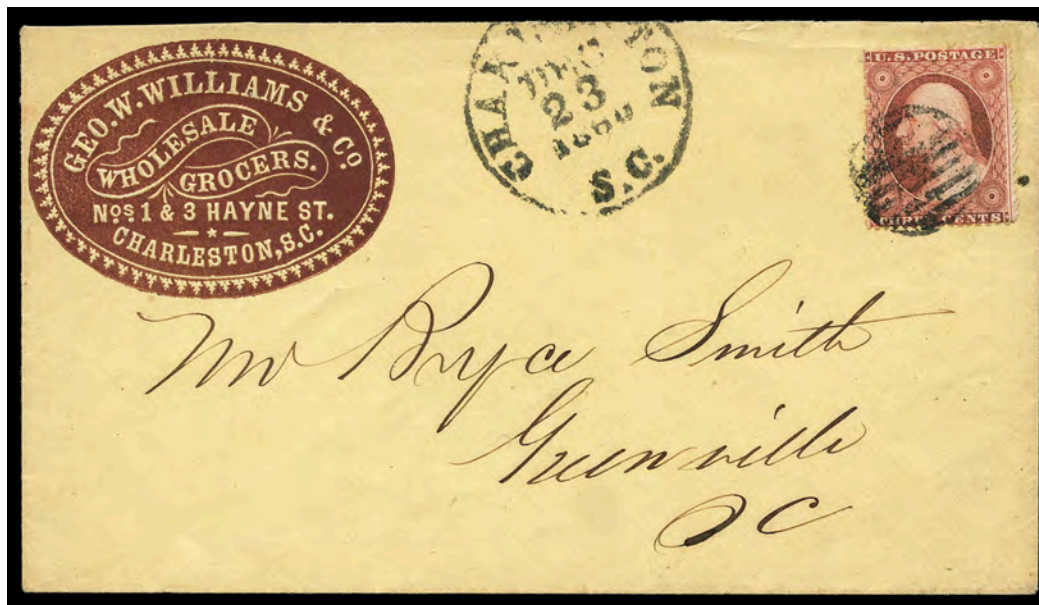 GEO. W. WILLIAMS & Co
WHOLESALE
GROCERS.
Nos. 1 & 3 HAYNE ST.
CHARLESTON, S.C.
CHARLESTON
23
S.C.
U.S. POSTAGE
THREE CENTS
Mr Bryce Smith
Greenville
SC